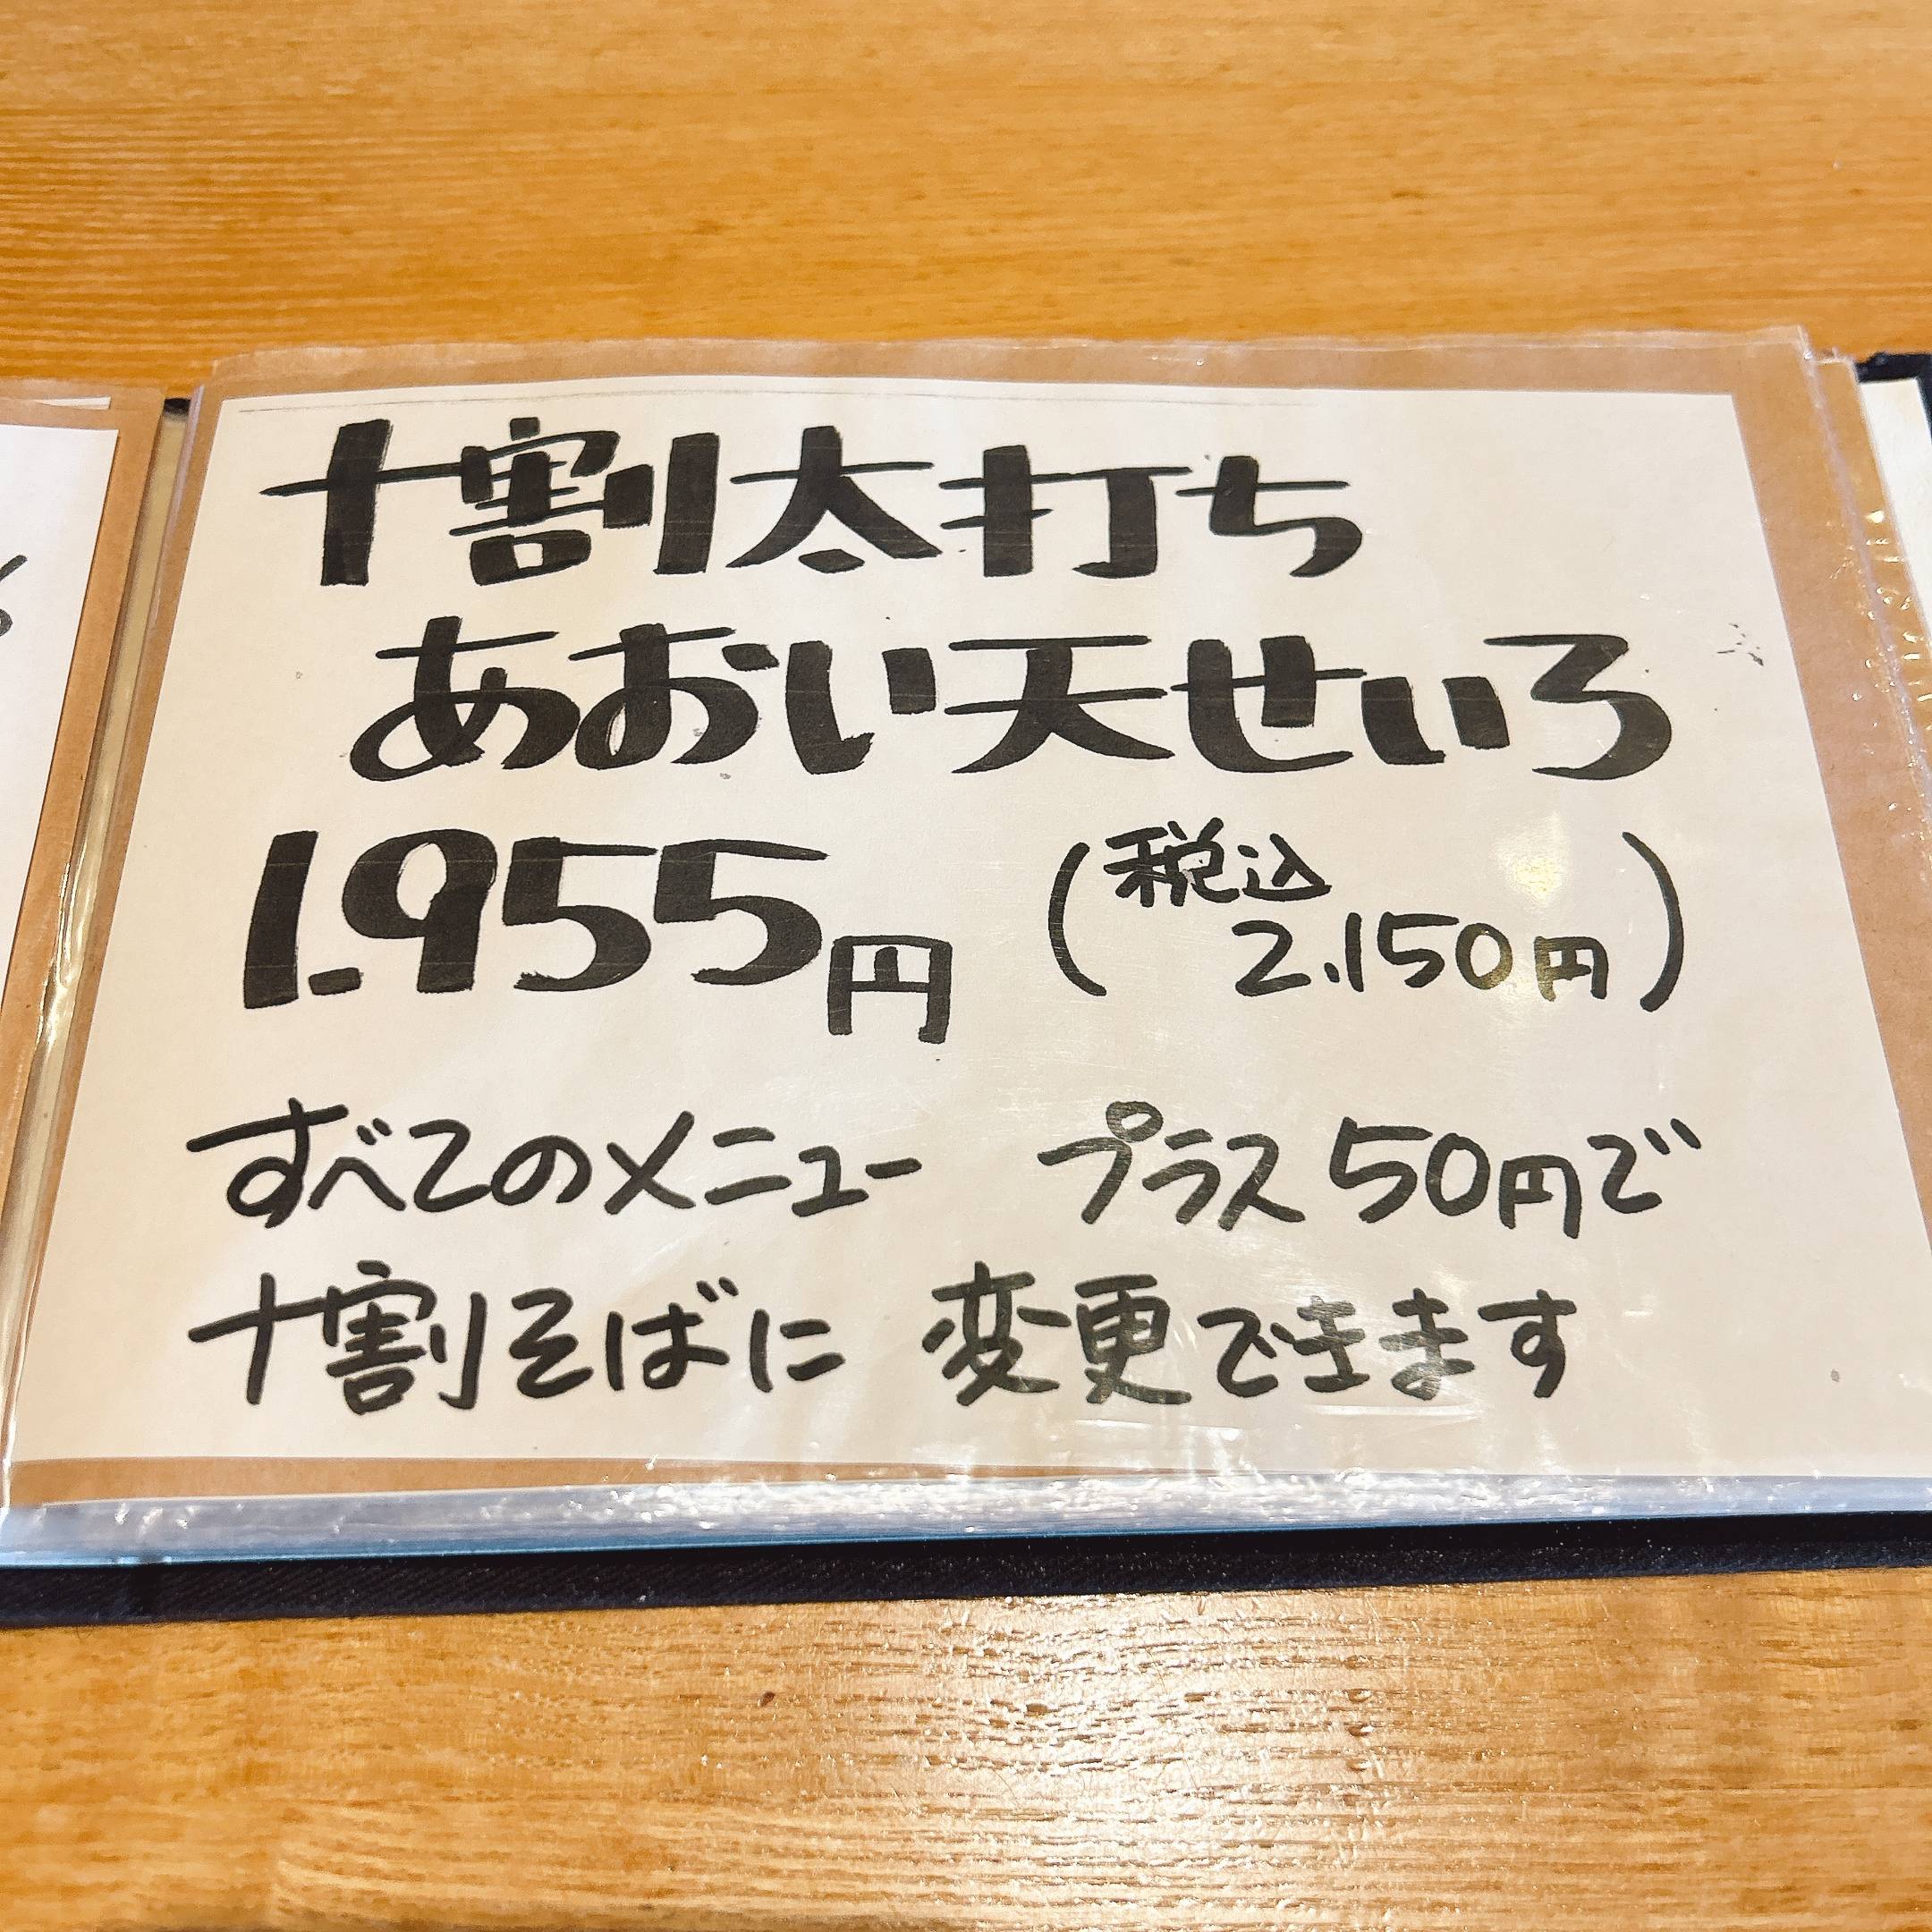 十割太打ち
あおい天せいろ
1.955円 (税込 2.150円)
すべてのメニュー プラス50円で
十割そばに 変更できます